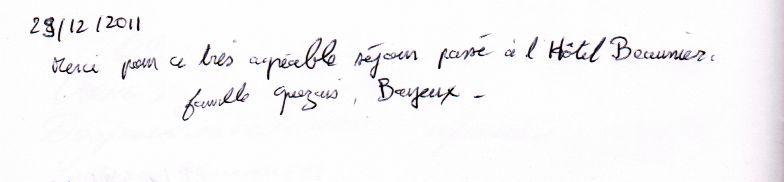 29/12/2011
Merci pour ce très agréable séjour passé à l'Hôtel Beaumier.
famille Quezais, Bayeux -